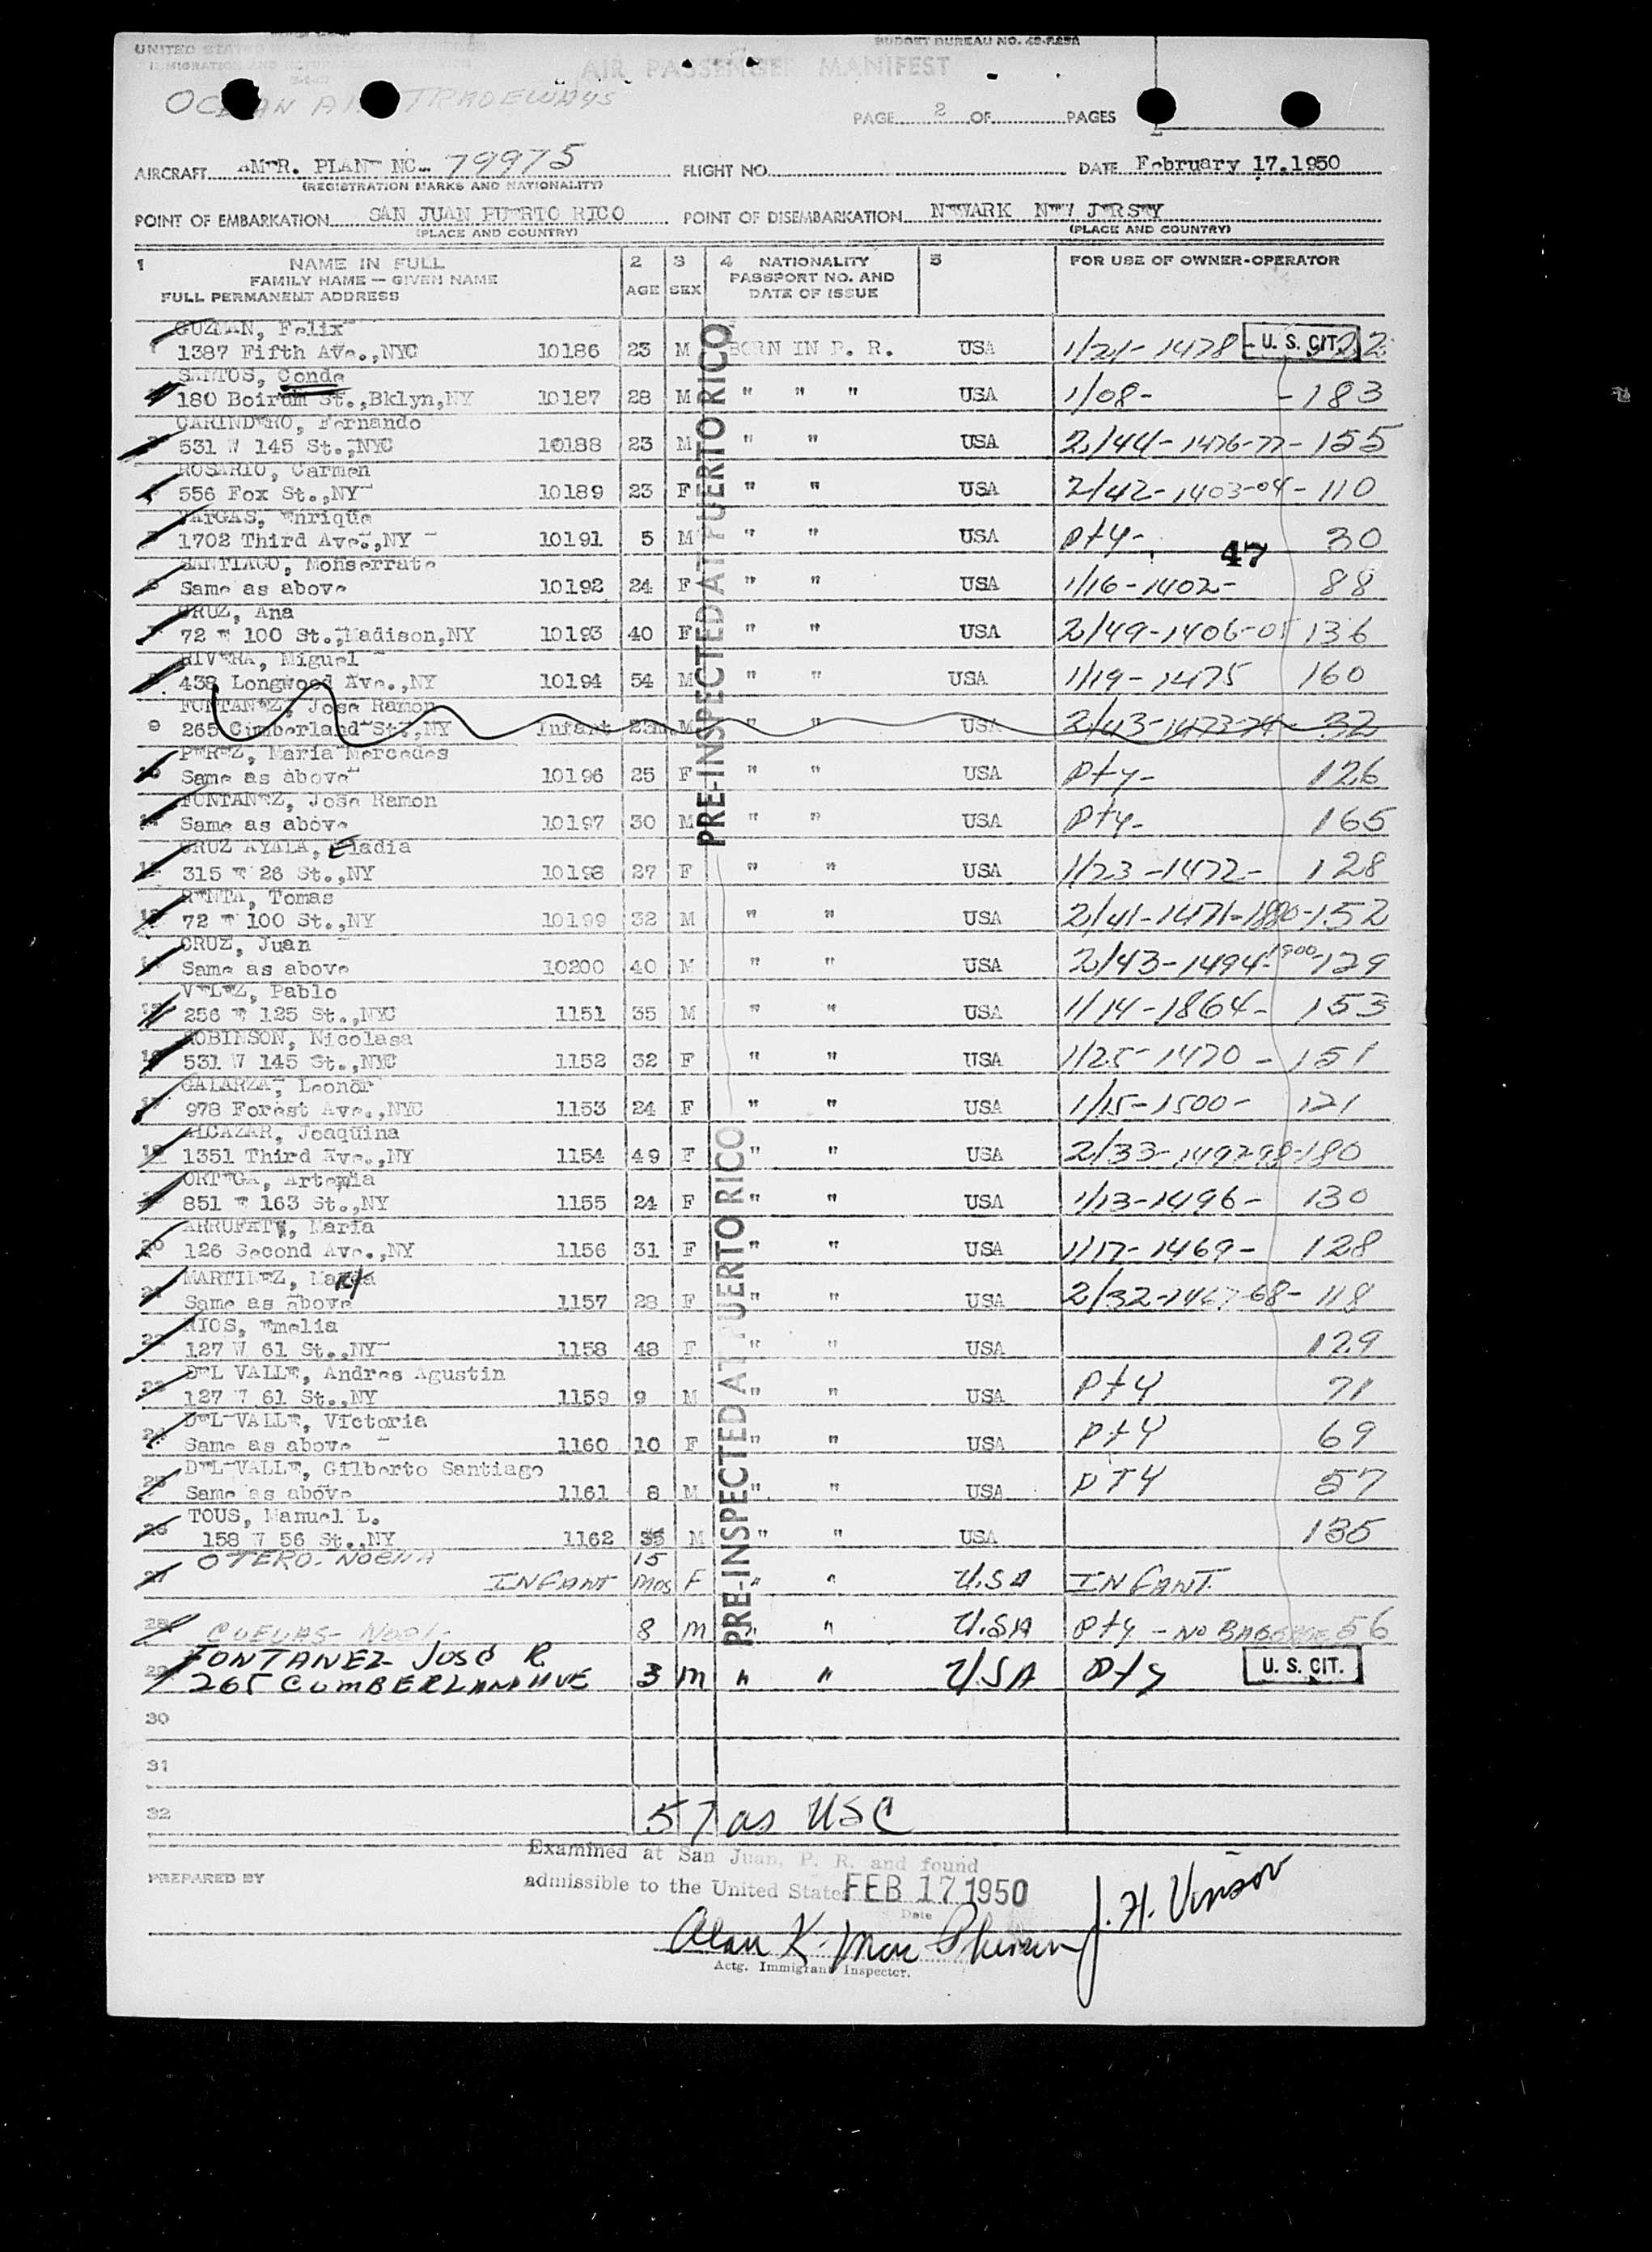 BUDGET BUREAU NO. 43-R252
UNITED STATES DEPARTMENT OF JUSTICE
IMMIGRATION AND NATURALIZATION SERVICE
AIR PASSENGER MANIFEST
OCEAN AIR TRADEWAYS
PAGE 2 OF PAGES
AIRCRAFT AMER. PLANE NC. 79975 FLIGHT NO. DATE February 17.1950
(REGISTRATION MARKS AND NATIONALITY)
POINT OF EMBARKATION SAN JUAN PUERTO RICO POINT OF DISEMBARKATION NEWARK NEW JERSEY
(PLACE AND COUNTRY) (PLACE AND COUNTRY)
1 NAME IN FULL 2 3 4 NATIONALITY 5 FOR USE OF OWNER-OPERATOR
FAMILY NAME — GIVEN NAME PASSPORT NO. AND
FULL PERMANENT ADDRESS AGE SEX DATE OF ISSUE
PRE-INSPECTED AT PUERTO RICO
GUZMAN, Felix
1 1387 Fifth Ave.,NYC 10186 23 M BORN IN P. R. USA 1/21-1478- U. S. CIT.
SANTOS, Conde
180 Boirum St.,Bklyn,NY 10187 28 M " " " USA 1/08- -183
CARINDERO, Fernando
3 531 W 145 St.,NYC 10188 23 M " " USA 2/44-1476-77-155
ROSARIO, Carmen
4 556 Fox St.,NY 10189 23 F " " USA 2/42-1403-04-110
VARGAS, Enrique
5 1702 Third Ave.,NY 10191 5 M " " USA Pty- 30
47
SANTIAGO, Monserrate
6 Same as above 10192 24 F " " USA 1/16-1402- 88
CRUZ, Ana
7 72 E 100 St.,Madison,NY 10193 40 F " " USA 2/49-1406-05 136
RIVERA, Miguel
8 438 Longwood Ave.,NY 10194 54 M " " USA 1/19-1475 160
FONTANEZ, Jose Ramon
9 265 Cumberland St.,NY Infant 23m M " " USA 2/43-1473-74-32
PEREZ, Maria Mercedes
10 Same as above 10196 25 F " " USA Pty- 126
FONTANEZ, Jose Ramon
11 Same as above 10197 30 M " " USA Pty- 165
CRUZ AYALA, Eladia
12 315 E 26 St.,NY 10198 27 F " " USA 1/23-1472- 128
RENTA, Tomas
13 72 E 100 St.,NY 10199 32 M " " USA 2/41-1471-1880-152
CRUZ, Juan
14 Same as above 10200 40 M " " USA 2/43-1494-1900-129
VELEZ, Pablo
15 256 E 125 St.,NYC 1151 35 M " " USA 1/14-1864- 153
ROBINSON, Nicolasa
16 531 W 145 St.,NYC 1152 32 F " " USA 1/25-1470 - 151
GALARZA, Leonor
17 978 Forest Ave.,NYC 1153 24 F " " USA 1/15-1500- 121
ALCAZAR, Joaquina
18 1351 Third Ave.,NY 1154 49 F " " USA 2/33-1497-98-180
ORTEGA, Artemia
19 851 E 163 St.,NY 1155 24 F " " USA 1/13-1496- 130
ARRUFAT, Maria
20 126 Second Ave.,NY 1156 31 F " " USA 1/17-1469- 128
MARTINEZ,
21 Same as above 1157 28 F " " USA 2/32-1467-68- 118
RIOS, Emelia
22 127 W 61 St.,NY 1158 48 F " " USA 129
DEL VALLE, Andres Agustin
23 127 W 61 St.,NY 1159 9 M " " USA Pty 71
DEL VALLE, Victoria
24 Same as above 1160 10 F " " USA Pty 69
DEL VALLE, Gilberto Santiago
25 Same as above 1161 8 M " " USA PTY 57
TOUS, Manuel L.
26 158 W 56 St.,NY 1162 35 M " " USA 135
PRE-INSPECTED AT PUERTO RICO
OTERO- NOENA 15
27 INFANT Mos F " " U.S.A INFANT.
28 CUEVAS- Noel- 8 m " " U.S.A Pty - NO BAGGAGE 56
FONTANEZ JOSE R.
29 265 CUMBERLAND AVE 3 m " " USA Pty U. S. CIT.
30
31
32 57 as USC
Examined at San Juan, P. R. and found
PREPARED BY admissible to the United States FEB 17 1950
Date
J. H. Vinson
Alan K. Mac
Actg. Immigrant Inspector.